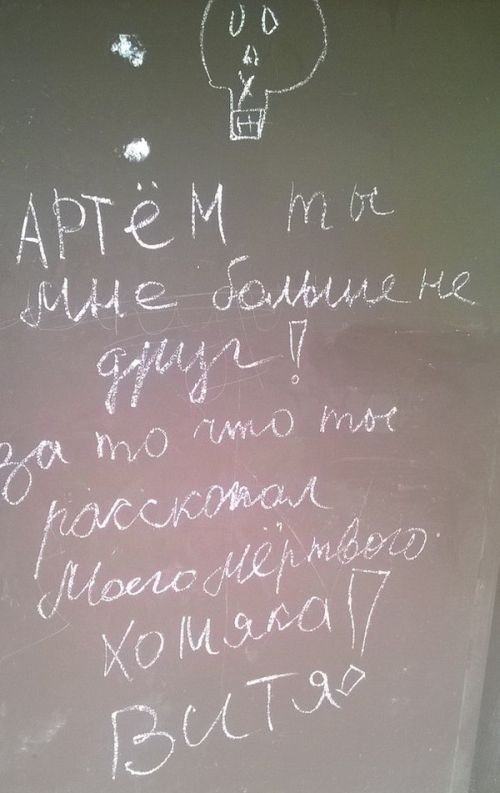 АРТЁМ ты
мне больше не
друг!
за то что ты
расскопал
Моего мёртвого
хомяка!
ВИТЯ